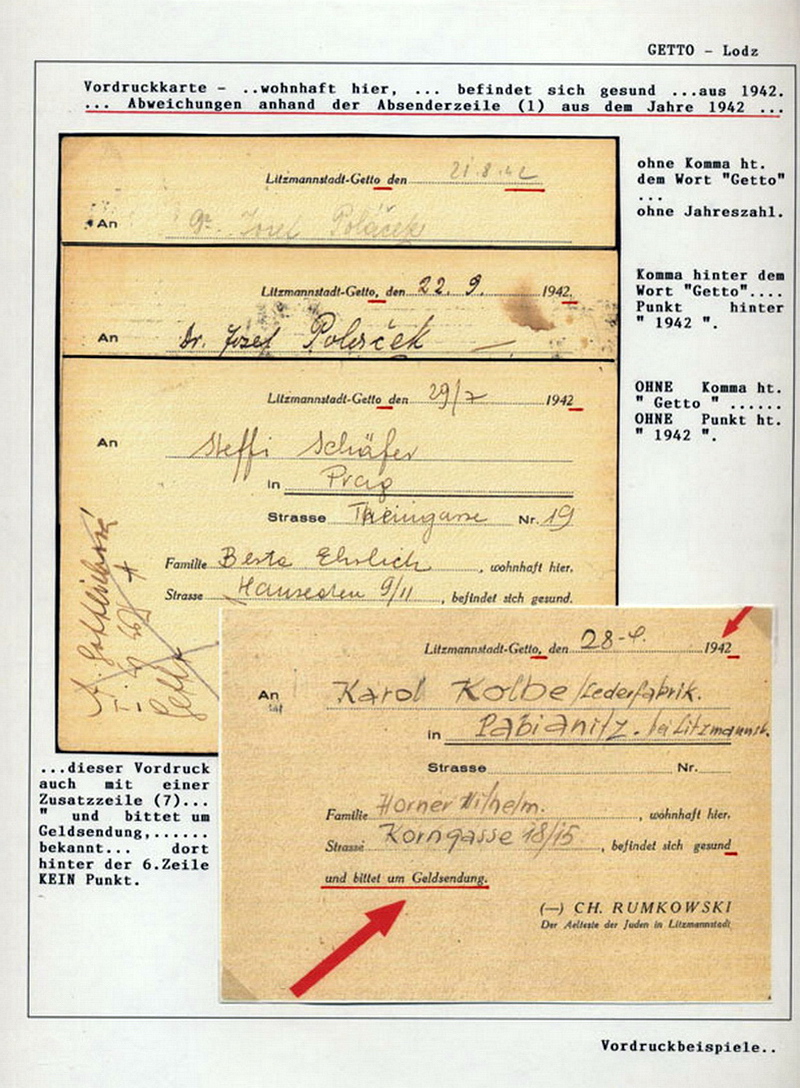 GETTO - Lodz
Vordruckkarte - ..wohnhaft hier, ... befindet sich gesund ...aus 1942.
... Abweichungen anhand der Absenderzeile (1) aus dem Jahre 1942 ...
Litzmannstadt-Getto den 21.8.42
An Dr. Josef Poláček
ohne Komma ht.
dem Wort "Getto"
...
ohne Jahreszahl.
Litzmannstadt-Getto, den 22. 9. 1942.
An Dr. Jozef Polaček
Komma hinter dem
Wort "Getto"....
Punkt hinter
" 1942 ".
Litzmannstadt-Getto den 29/7 1942
An Steffi Schäfer
in Prag
Strasse Theingasse Nr. 19
Familie Berta Ehrlich, wohnhaft hier,
Strasse Hanseaten 9/11, befindet sich gesund.
OHNE Komma ht.
" Getto " ......
OHNE Punkt ht.
" 1942 ".
Getto
Litzmannstadt-Getto, den 28-4. 1942
An Karol Kolbe/Lederfabrik.
in Pabianitz. bei Litzmannst.
Strasse Nr.
Familie Horner Wilhelm., wohnhaft hier,
Strasse Korngasse 18/15, befindet sich gesund
und bittet um Geldsendung.
(—) CH. RUMKOWSKI
Der Aelteste der Juden in Litzmannstadt
...dieser Vordruck
auch mit einer
Zusatzzeile (7)...
" und bittet um
Geldsendung,......
bekannt... dort
hinter der 6.Zeile
KEIN Punkt.
Vordruckbeispiele..